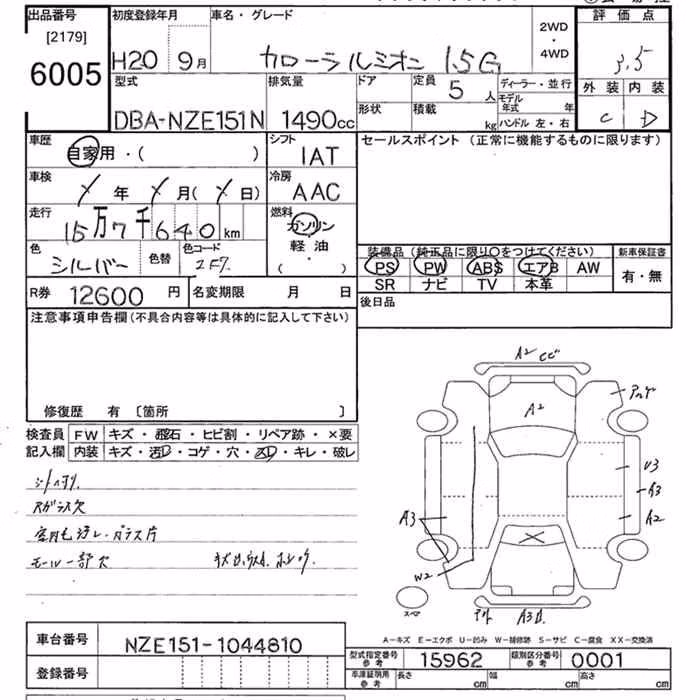 出品番号 初度登録年月 車名・グレード 2WD・4WD 評価点
[2179]
6005 H20 9月 カローラルミオン 1.5G 3.5
型式 排気量 ドア 定員 5人 ディーラー・並行 外装 内装
DBA-NZE151N 1490cc 形状 積載 kg モデル年式 年 C D
ハンドル 左・右
車歴 自家用・( ) シフト IAT セールスポイント (正常に機能するものに限ります)
車検 年 月( 日) 冷房 AAC
走行 15万7千640km 燃料 ガソリン
軽・油
・( )
色 シルバー 色替 色コード 2F7 装備品(純正品に限り○をつけてください) 新車保証書
PS PW ABS エアB AW 有・無
SR ナビ TV 本革
R券 12600円 名変期限 月 日 後日品
注意事項申告欄(不具合内容等は具体的に記入して下さい)
修復歴 有 〔箇所 〕
検査員 FW キズ・飛石・ヒビ割・リペア跡・×要
記入欄 内装 キズ・汚レ・コゲ・穴・スレ・キレ・破レ
モール一部欠
A2
A2
U3
A3
A3 A2
W2
スペア A3
A-キズ E-エクボ U-凹み W-補修跡 S-サビ C-腐食 XX-交換済
車台番号 NZE151-1044810
型式指定番号 参考 15962 類別区分番号 参考 0001
登録番号 車検証明用 参考 長さ cm 幅 cm 高さ cm